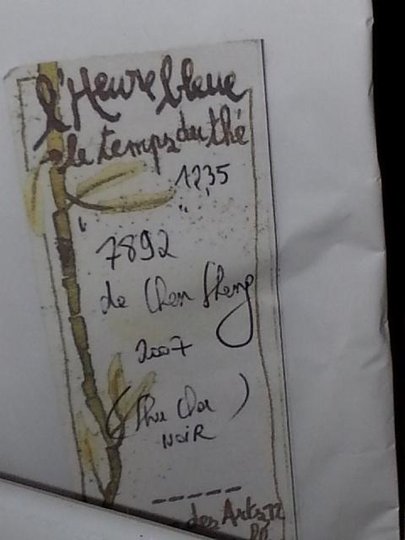 l'Heure bleue
le temps du thé
1235
7892
de Chen Sheng
2007
(Shu Cha)
NOIR
des Arts